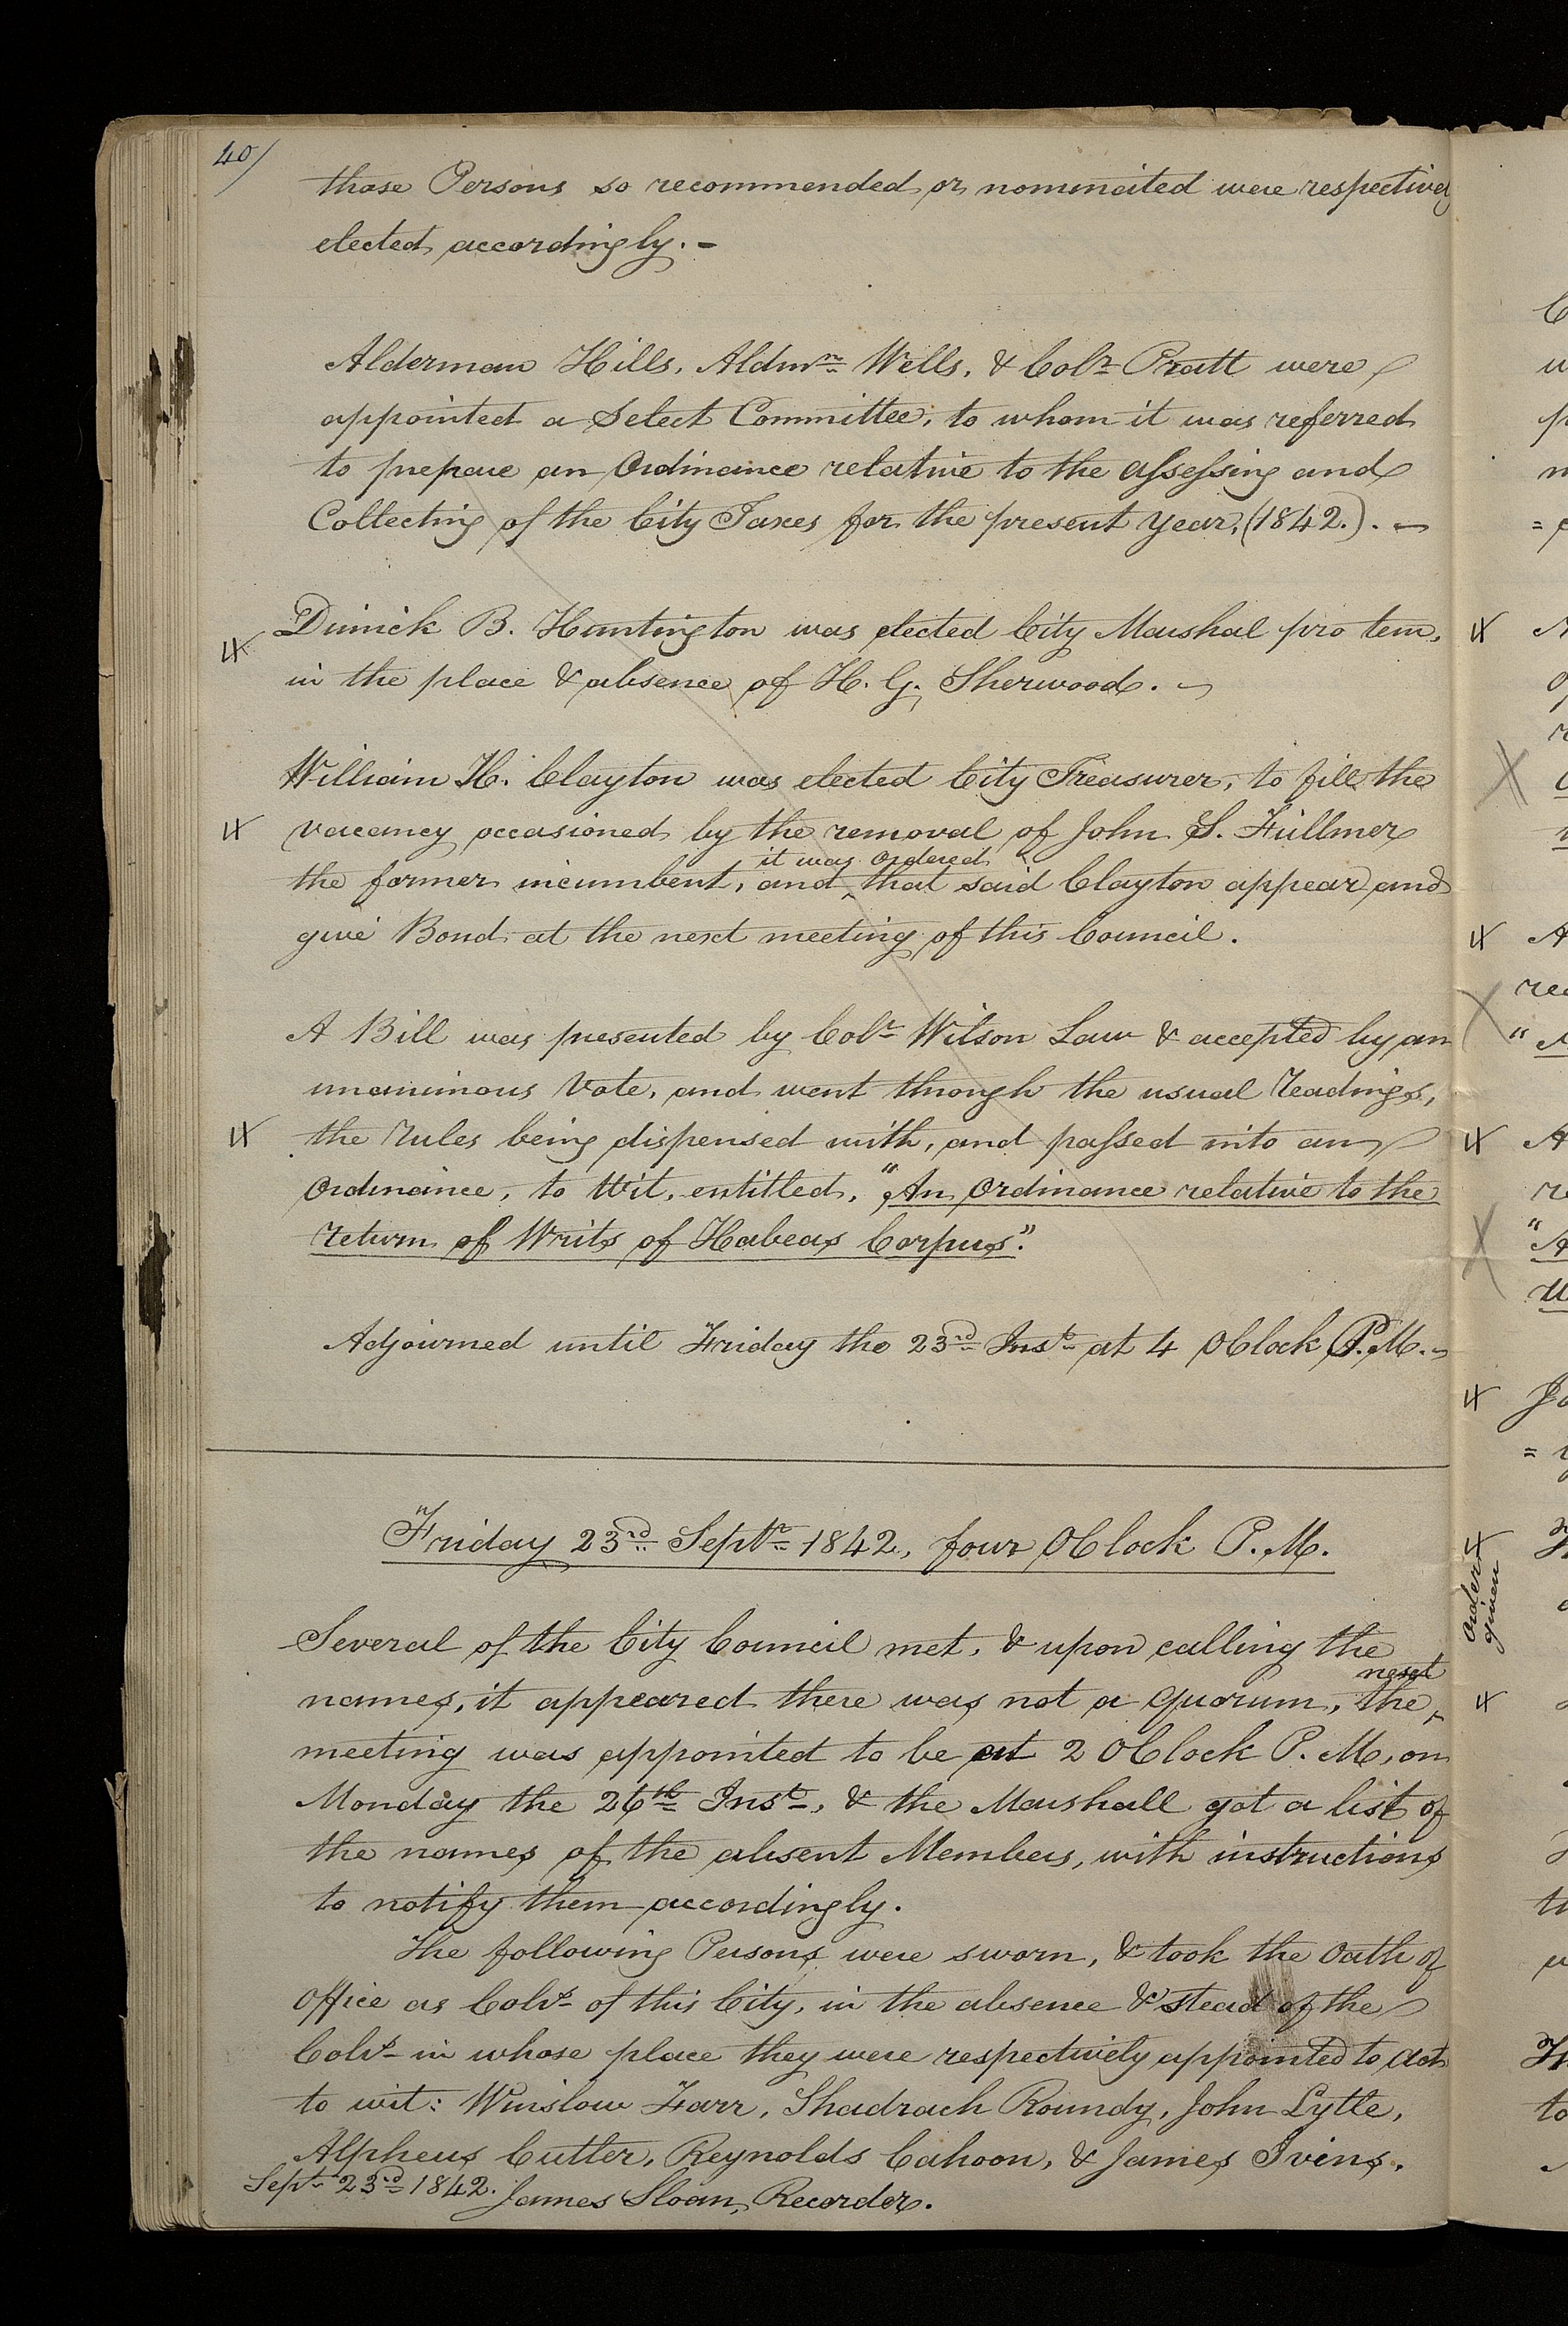 40/
those Persons so recommended or nominated were respectively
elected accordingly. -
Alderman Hills, Aldmn. Wells, & Colr. Pratt were
appointed a Select Committee, to whom it was referred
to prepare an Ordinance relative to the assessing and
Collecting of the City Taxes for the present year, (1842.). -
Dimick B. Huntington was elected City Marshal pro tem,
in the place & absence of H. G. Sherwood. -
William H. Clayton was elected City Treasurer, to fill the
vacancy occasioned by the removal of John S. Fullmer
it was ordered
the former incumbent, and ^ that said Clayton appear and
give Bond at the next meeting of this Council.
A Bill was presented by Colr. Wilson Law & accepted by an
unanimous Vote, and went through the usual readings,
the rules being dispensed with, and passed into an
Ordinance, to Wit, entitled, "An Ordinance relative to the
return of Writs of Habeas Corpus."
Adjourned until Friday the 23rd Inst. at 4 OClock P.M. -
Friday 23rd Septr. 1842, four OClock P.M.
Several of the City Council met, & upon calling the
next
names, it appeared there was not a quorum, the ^
meeting was appointed to be at 2 OClock P.M, on
Monday the 26th Inst., & the Marshall got a list of
the names of the absent Members, with instructions
to notify them accordingly.
The following Persons were sworn, & took the Oath of
Office as Colrs. of this City, in the absence & stead of the
Colrs. in whose place they were respectively appointed to act
to wit: Winslow Farr, Shadrach Roundy, John Lytle,
Alpheus Cutler, Reynolds Cahoon, & James Ivins.
Sept. 23rd 1842. James Sloan, Recorder.
Order
given